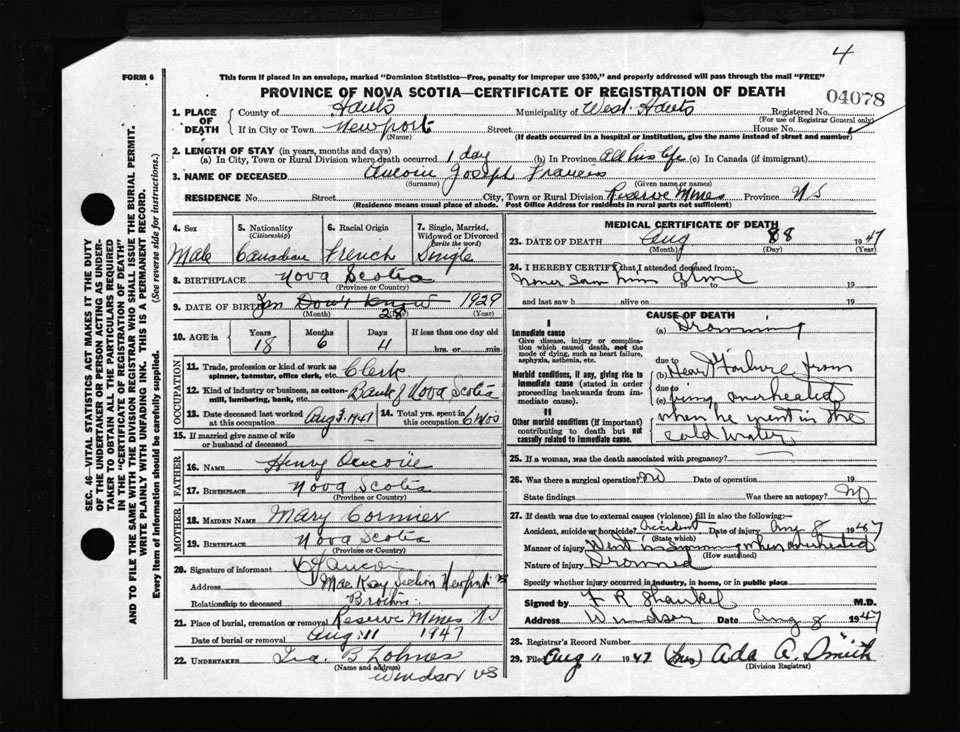 4
FORM 6
This form if placed in an envelope, marked "Dominion Statistics—Free, penalty for improper use $300," and properly addressed will pass through the mail "FREE"
PROVINCE OF NOVA SCOTIA—CERTIFICATE OF REGISTRATION OF DEATH
04078
1. PLACE OF DEATH
County of Hants Municipality of West Hants Registered No.
(For use of Registrar General only)
If in City or Town Newport Street House No.
(Name) (If death occurred in a hospital or institution, give the name instead of street and number)
2. LENGTH OF STAY (in years, months and days)
(a) In City, Town or Rural Division where death occurred 1 day (b) In Province All his life (c) In Canada (if immigrant)
3. NAME OF DECEASED Aucoin Joseph Francis
(Surname) (Given name or names)
RESIDENCE No. Street City, Town or Rural Division Reserve Mines Province NS
(Residence means usual place of abode. Post Office Address for residents in rural parts not sufficient)
4. Sex Male
5. Nationality (Citizenship) Canadian
6. Racial Origin French
7. Single, Married, Widowed or Divorced (write the word) Single
8. BIRTHPLACE Nova Scotia
(Province or Country)
9. DATE OF BIRTH Jan Don't Know 28 1929
(Month) (Year)
10. AGE in Years Months Days If less than one day old
18 6 11 hrs. or min.
OCCUPATION
11. Trade, profession or kind of work as spinner, teamster, office clerk, etc. Clerk
12. Kind of industry or business, as cotton-mill, lumbering, bank, etc. Bank of Nova Scotia
13. Date deceased last worked at this occupation Aug 7, 1947
14. Total yrs. spent in this occupation 6 mos
15. If married give name of wife or husband of deceased
FATHER
16. NAME Henry Aucoin
17. BIRTHPLACE Nova Scotia
(Province or Country)
MOTHER
18. MAIDEN NAME Mary Cormier
19. BIRTHPLACE Nova Scotia
(Province or Country)
20. Signature of informant Aucoin
Address Mac Kay Section Newport NS
Relationship to deceased Brother
21. Place of burial, cremation or removal Reserve Mines NS
Date of burial or removal Aug 11 1947
22. UNDERTAKER Ira. B Lohnes
(Name and address)
Windsor NS
MEDICAL CERTIFICATE OF DEATH
23. DATE OF DEATH Aug 8 8 1947
(Month) (Day)
24. I HEREBY CERTIFY that I attended deceased from:
never saw him alive 19 to 19
and last saw h alive on 19
CAUSE OF DEATH
I
Immediate cause
Give disease, injury or complication which caused death, not the mode of dying, such as heart failure, asphyxia, asthenia, etc.
(a) Drowning
due to
Morbid conditions, if any, giving rise to immediate cause (stated in order proceeding backwards from immediate cause).
(b) Heart Failure from
due to
(c) being overheated
II
Other morbid conditions (if important) contributing to death but not causally related to immediate cause.
when he went in the
cold water
25. If a woman, was the death associated with pregnancy?
26. Was there a surgical operation? No Date of operation 19
State findings Was there an autopsy? No
27. If death was due to external causes (violence) fill in also the following:—
Accident, suicide or homicide? Accident Date of injury Aug 8 1947
(State which)
Manner of injury Went in swimming when overheated
(How sustained)
Nature of injury Drowned
Specify whether injury occurred in industry, in home, or in public place
Signed by F R Shankel M.D.
Address Windsor Date Aug 8 1947
28. Registrar's Record Number
29. Filed Aug 11 1947 (Mrs) Ada A. Smith
(Division Registrar)
SEC. 46—VITAL STATISTICS ACT MAKES IT THE DUTY
OF THE UNDERTAKER OR PERSON ACTING AS UNDER-
TAKER TO OBTAIN ALL THE PARTICULARS REQUIRED
IN THE "CERTIFICATE OF REGISTRATION OF DEATH"
AND TO FILE THE SAME WITH THE DIVISION REGISTRAR WHO SHALL ISSUE THE BURIAL PERMIT.
WRITE PLAINLY WITH UNFADING INK. THIS IS A PERMANENT RECORD.
Every Item of Information should be carefully supplied. (See reverse side for instructions.)